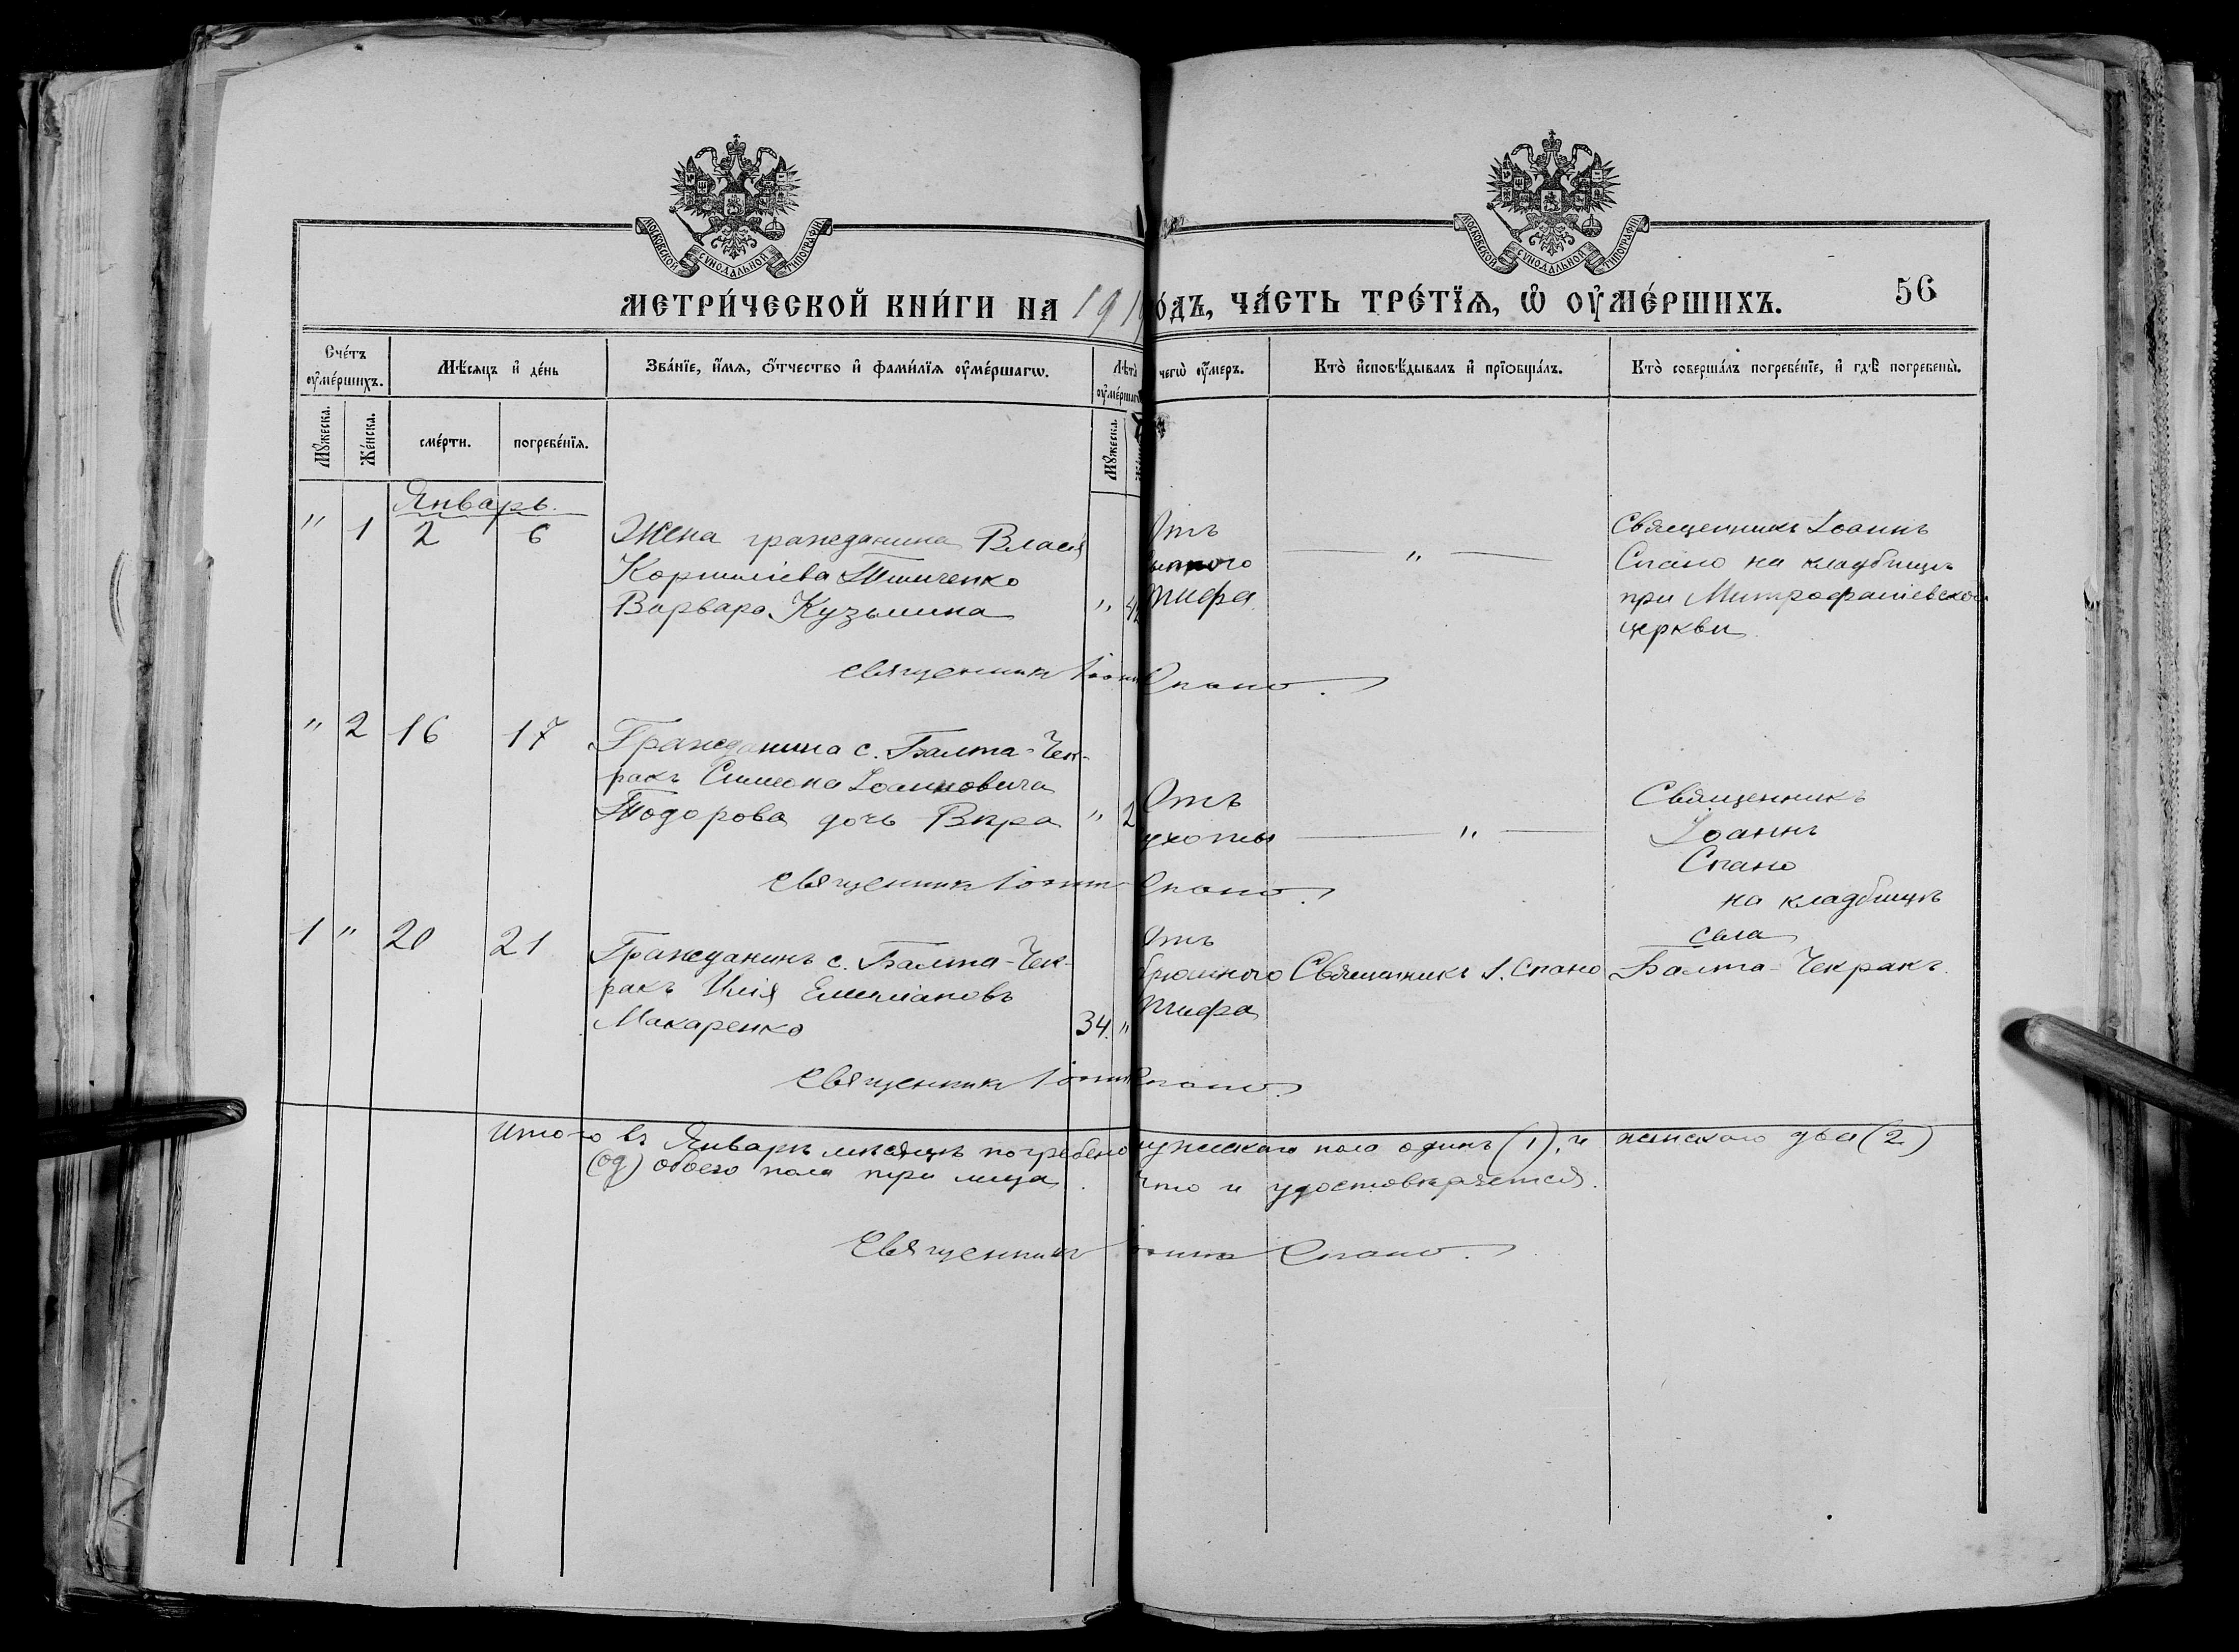 МОСКОВСКОЙ СУНОДАЛЬНОЙ ТИПОГРАФІИ
МОСКОВСКОЙ СУНОДАЛЬНОЙ ТИПОГРАФІИ
МЕТРИ́ЧЕСКОЙ КНИ́ГИ НА 191 о́дъ, ЧА́СТЬ ТРЕ́ТЇѦ, Ѡ҆ ОУ҆МЕ́РШИХЪ.
56
Сче́тъ оу҆ме́ршихъ.
Мѣ́сяцъ и҆ де́нь
Зва́нїе, и҆́мя, ѻ҆́тчество и҆ фами́лїя оу҆ме́ршагѡ.
Лѣ́та оу҆ме́ршагѡ
чегѡ̀ оу҆́меръ.
Кто̀ и҆сповѣ́дывалъ и҆ прїѻбща́лъ.
Кто̀ соверша́лъ погребе́нїе, и҆ гдѣ̀ погребены̀.
Мꙋ́жеска.
Же́нска.
сме́рти.
погребе́нїя.
Мꙋ́жеска.
Январь.
" 1 2 6 Жена гражданина Власія
Корнилiева Тимченко
Варвара Кузьмина "
Отъ
тифа
— " —
Священникъ Іоаннъ
Спано на кладбищѣ
при Митрофаніевской
церкви
Священникъ Іоаннъ Спано.
" 2 16 17 Гражданина с. Балта-Чек-
ракъ Симеона Іоанновича
Тодорова дочь Вѣра " 2
Отъ
ухоты
— " —
Священникъ
Іоаннъ
Спано
на кладбищѣ
села
Балта-Чекракъ.
Священникъ Іоаннъ Спано.
1 " 20 21 Гражданинъ с. Балта-Чек-
ракъ Илія Емельяновъ
Макаренко 34. "
Отъ
брюшного
тифа
Священникъ І. Спано
Священникъ Іоаннъ Спано.
Итого въ Январѣ мѣсяцѣ погребено мужескаго пола одинъ (1), и женскаго два (2)
(од) обоего пола три лица. Что и удостовѣряется.
Священникъ Іоаннъ Спано.